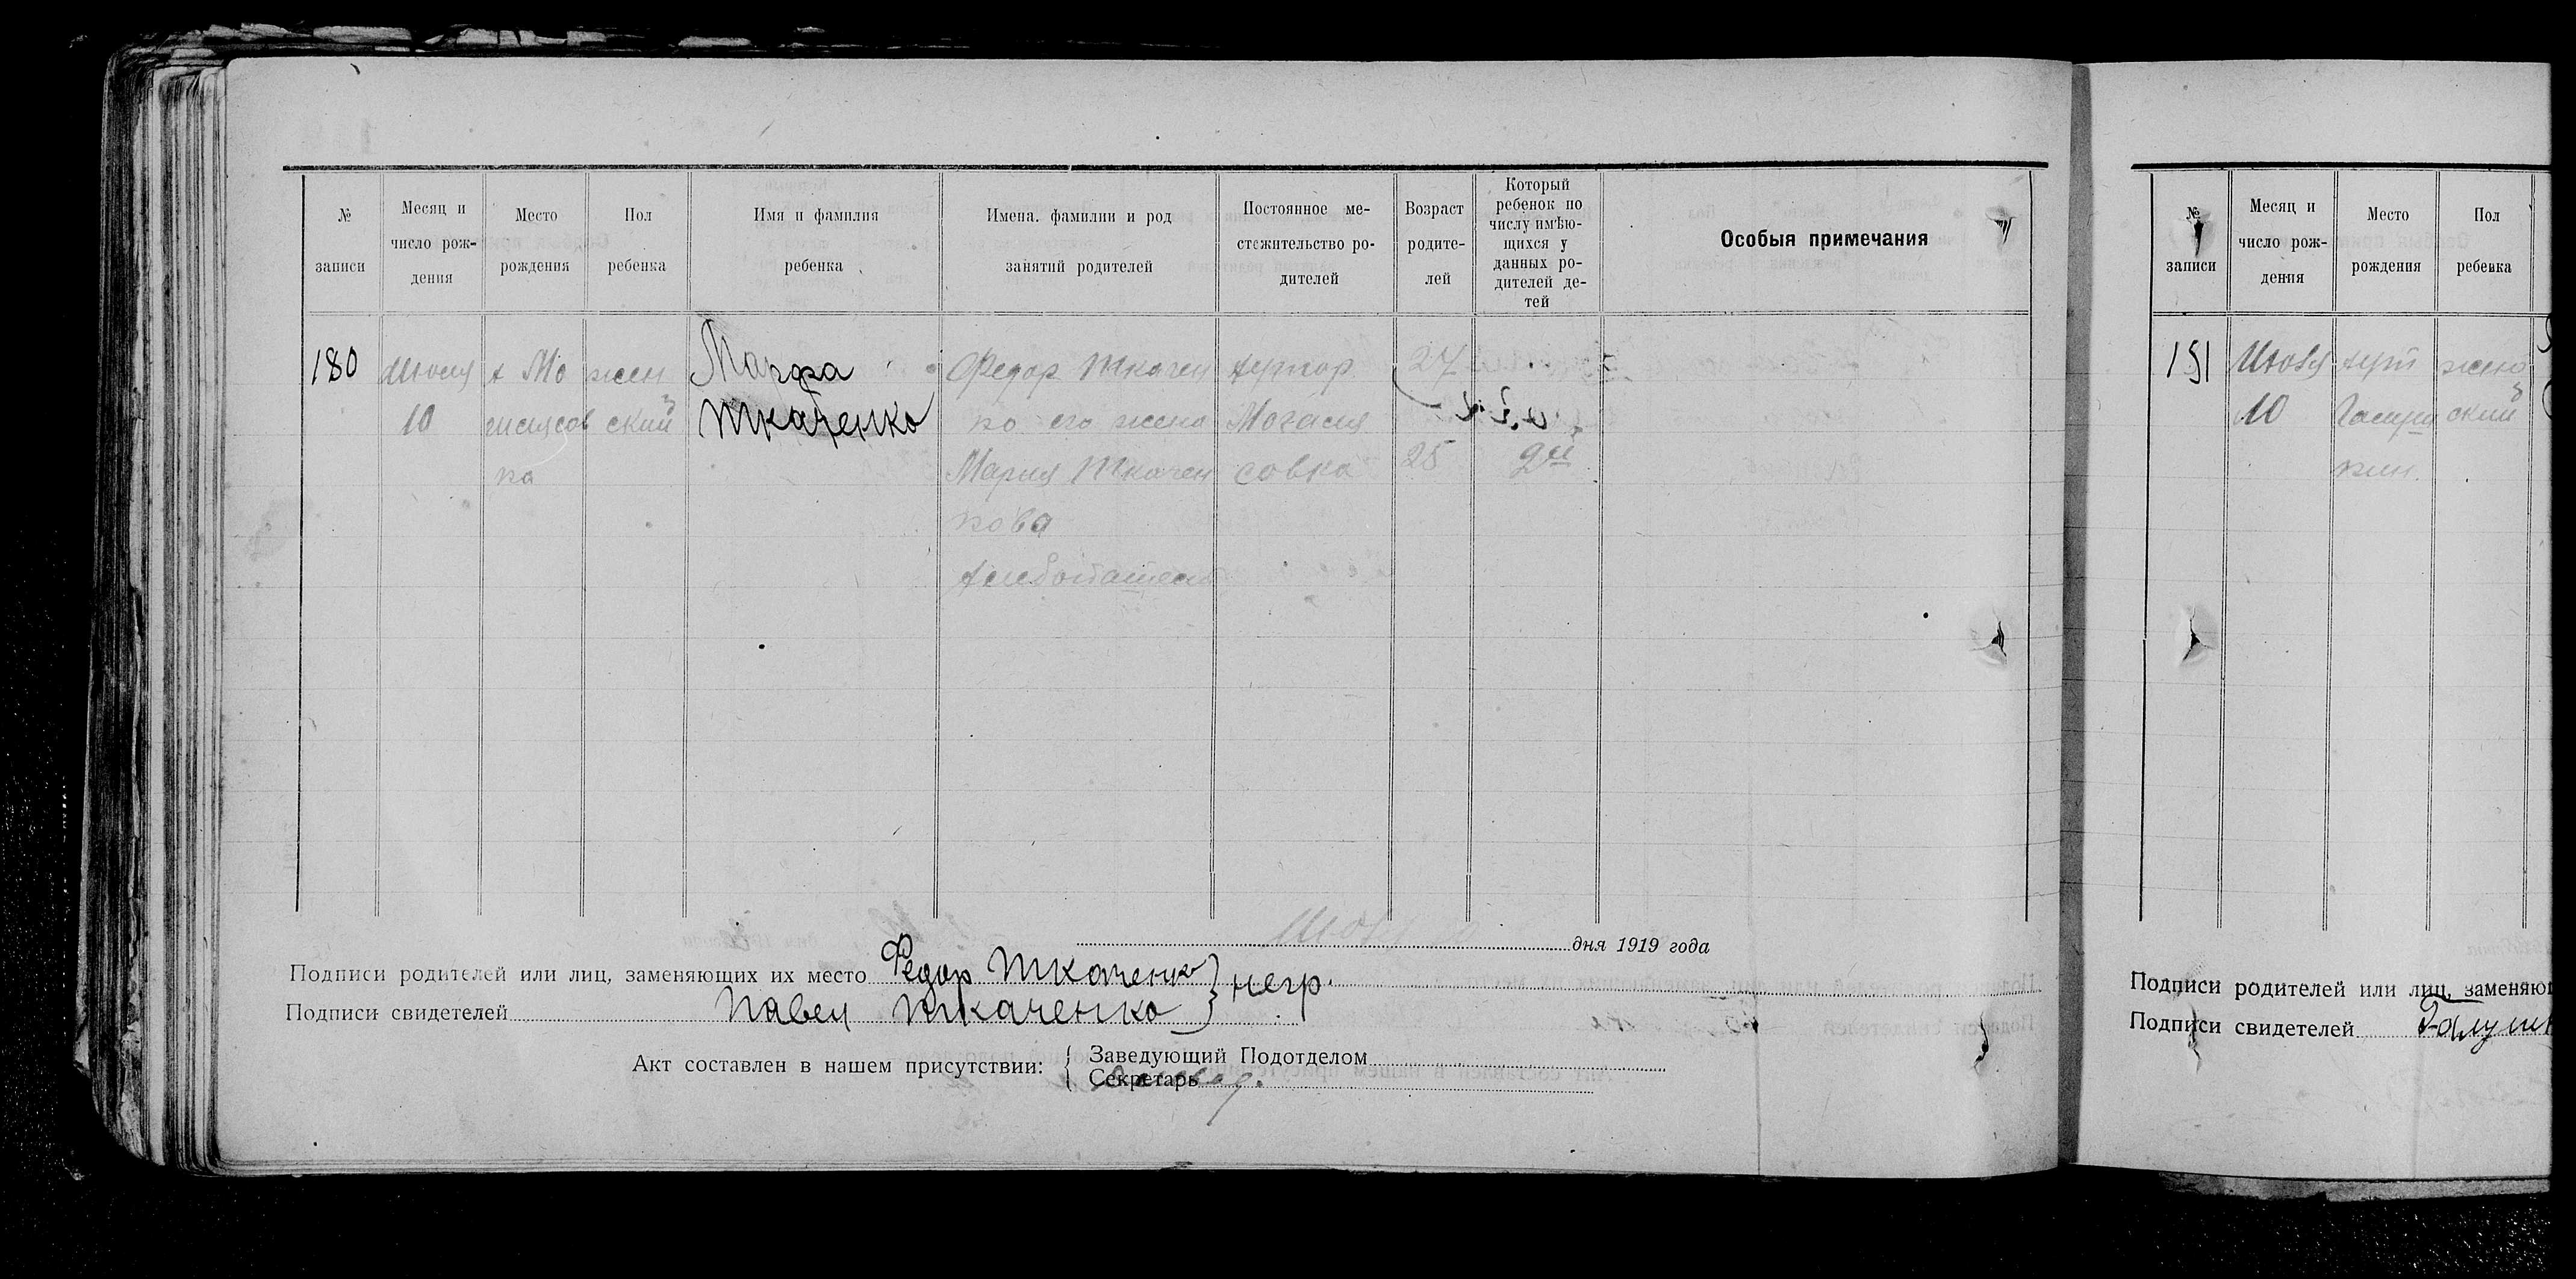 № записи
Месяц и число рож-
дения
Место рождения
Пол ребенка
Имя и фамилия ребенка
Имена, фамилии и род занятий родителей
Постоянное ме-
стожительство ро-
дителей
Возраст родите-
лей
Который
ребенок по
числу имѣю-
щихся у
данных ро-
дителей де-
тей
Особыя примечания
180
Июля
10
х Мо
гилясов
ка
жен
ский
Марфа
Ткаченко
Федор Ткачен
ко его жена
Мария Ткачен
кова
хлебопашец
хутор
совка
27
25
2й
дня 1919 года
Подписи родителей или лиц, заменяющих их место Федор Ткаченко } негр.
Подписи свидетелей Павел Ткаченко
Акт составлен в нашем присутствии: { Заведующий Подотделом
Секретарь
№ записи
Месяц и
число рож-
дения
Место
рождения
Пол
ребенка
181
Июля
10
хут
жен
ский
Подписи родителей или лиц, заменяю
Подписи свидетелей